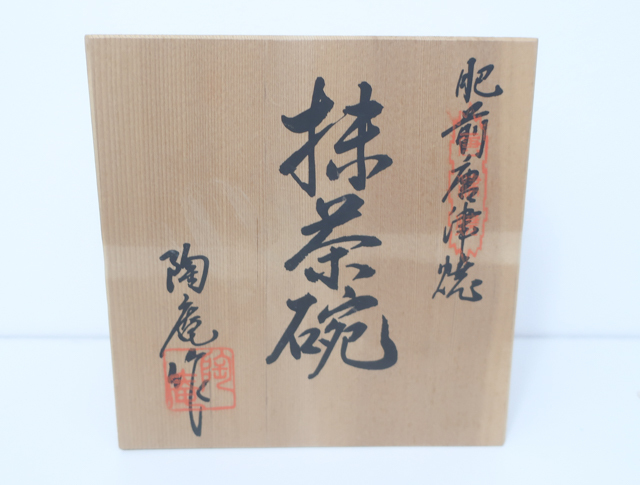 肥前唐津焼
抹茶碗
陶庵作
陶庵